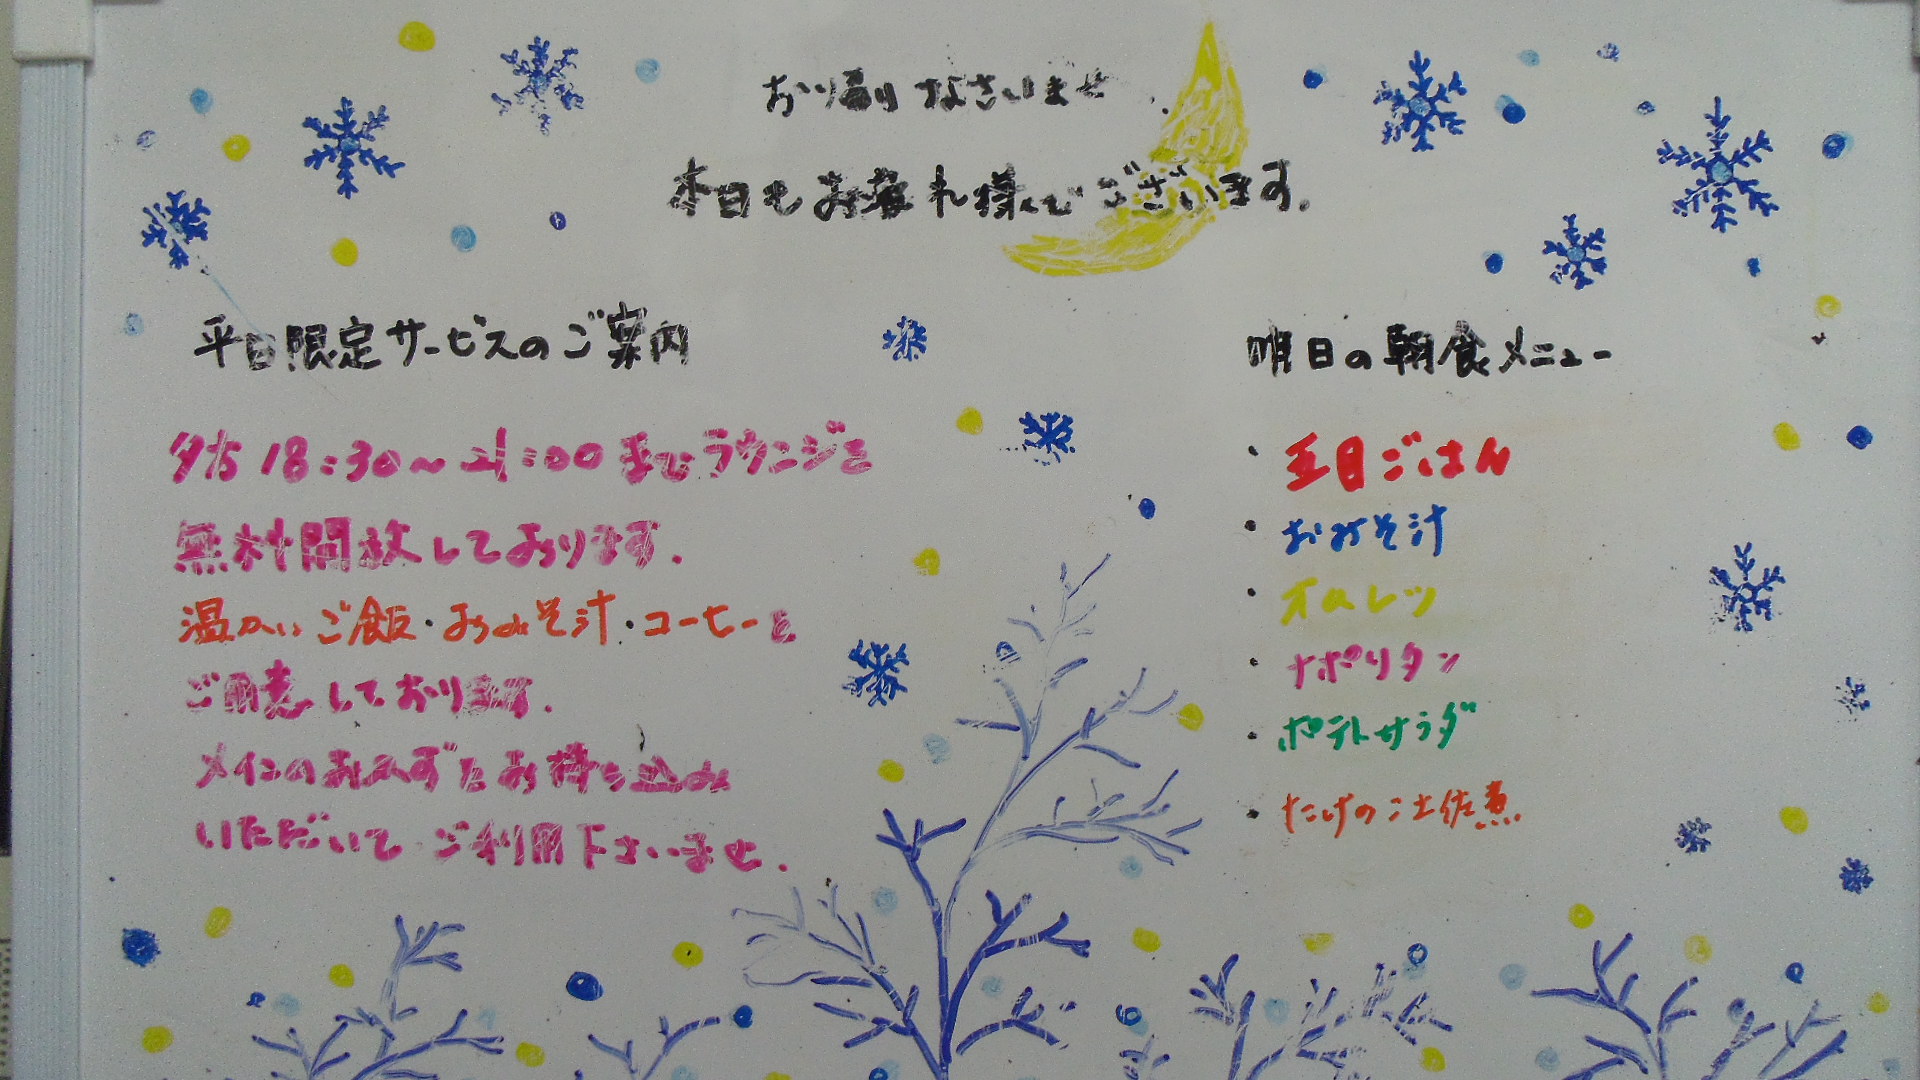 お帰りなさいませ
本日もお疲れ様でございます.
平日限定サービスのご案内
夕方 18:30～21:00までラウンジを
無料開放しております.
温かいご飯・おみそ汁・コーヒーを
ご用意しております.
メインのおかずをお持ち込み
いただいて ご利用下さいませ.
明日の朝食メニュー
・五目ごはん
・おみそ汁
・オムレツ
・ナポリタン
・ポテトサラダ
・たけのこ土佐煮